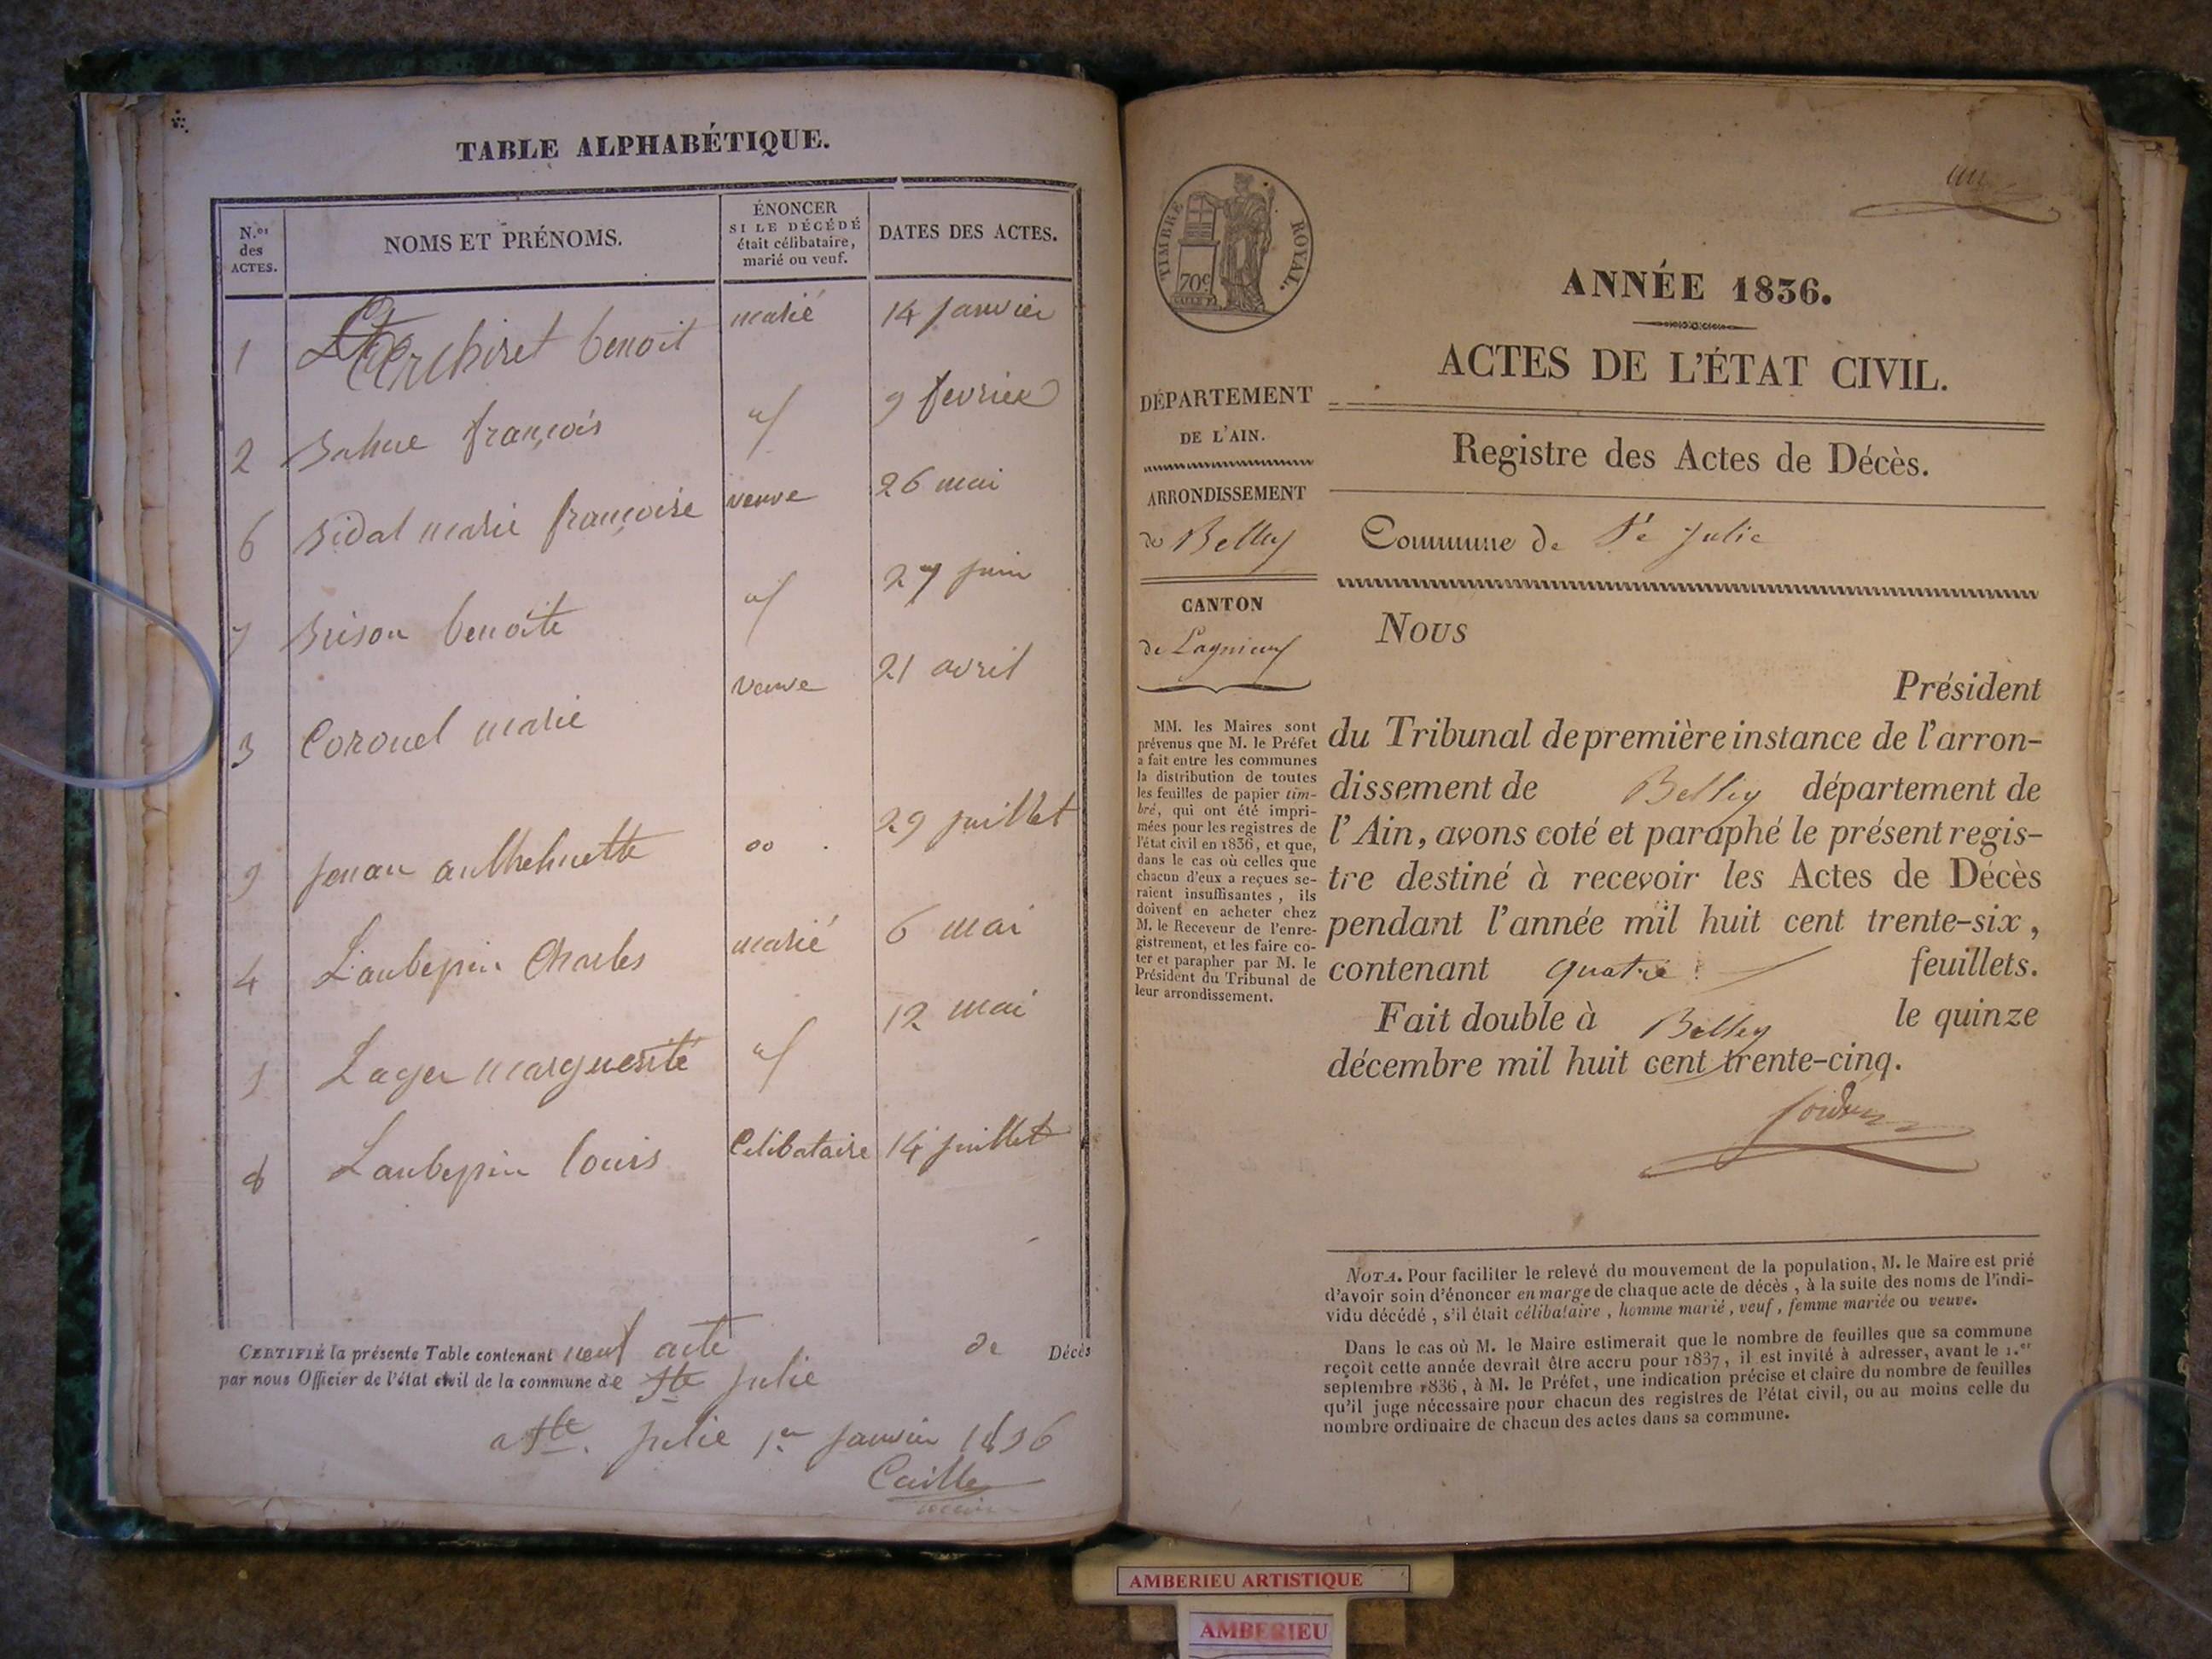 TABLE ALPHABÉTIQUE.
N.os des ACTES.
NOMS ET PRÉNOMS.
ÉNONCER
SI LE DÉCÉDÉ
était célibataire,
marié ou veuf.
DATES DES ACTES.
1 benoit marié 14 janvier
2 françois 9 fevrier
6 Bidal marie françoise veuve 26 mai
7 Brison benoite 27 juin
3 Coronel marie veuve 21 avril
9 29 juillet
4 Laubepin Charles marié 6 mai
Lager marguerite 12 mai
8 Laubepin louis Celibataire 14 juillet
CERTIFIÉ la présente Table contenant neuf acte de Décès
par nous Officier de l'état civil de la commune de Ste Julie
a Ste. Julie 1er janvier 1836
Caille
TIMBRE ROYAL.
70c
ANNÉE 1836.
ACTES DE L'ÉTAT CIVIL.
DÉPARTEMENT
DE L'AIN.
ARRONDISSEMENT
de Belley
CANTON
de Lagnieu
MM. les Maires sont
prévenus que M. le Préfet
a fait entre les communes
la distribution de toutes
les feuilles de papier tim-
bré, qui ont été impri-
mées pour les registres de
l'état civil en 1836, et que,
dans le cas où celles que
chacun d'eux a reçues se-
raient insuffisantes, ils
doivent en acheter chez
M. le Receveur de l'enre-
gistrement, et les faire co-
ter et parapher par M. le
Président du Tribunal de
leur arrondissement.
Registre des Actes de Décès.
Commune de Ste Julie
Nous
Président
du Tribunal de première instance de l'arron-
dissement de Belley département de
l'Ain, avons coté et paraphé le présent regis-
tre destiné à recevoir les Actes de Décès
pendant l'année mil huit cent trente-six,
contenant quatre feuillets.
Fait double à Belley le quinze
décembre mil huit cent trente-cinq.
NOTA. Pour faciliter le relevé du mouvement de la population, M. le Maire est prié
d'avoir soin d'énoncer en marge de chaque acte de décès, à la suite des noms de l'indi-
vidu décédé, s'il était célibataire, homme marié, veuf, femme mariée ou veuve.
Dans le cas où M. le Maire estimerait que le nombre de feuilles que sa commune
reçoit cette année devrait être accru pour 1837, il est invité à adresser, avant le 1.er
septembre 1836, à M. le Préfet, une indication précise et claire du nombre de feuilles
qu'il juge nécessaire pour chacun des registres de l'état civil, ou au moins celle du
nombre ordinaire de chacun des actes dans sa commune.
AMBERIEU ARTISTIQUE
AMBERIEU